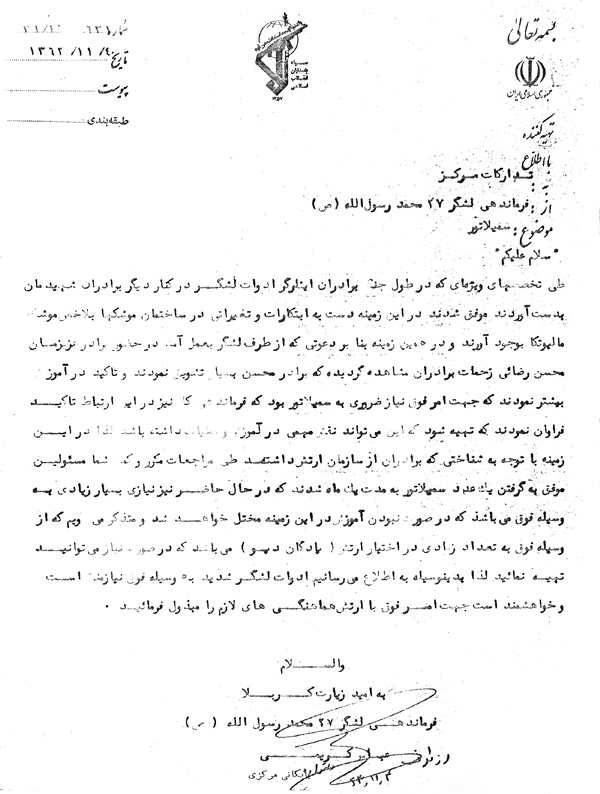 بسمه تعالی
جمهوری اسلامی ایران
سپاه پاسداران انقلاب اسلامی
شماره
تاریخ ۱۳۶۲/۱۱/
پیوست
طبقه‌بندی
تهیه کننده
با اطلاع
به : تدارکات مرکز
از : فرماندهی لشگر ۲۷ محمد رسول‌الله (ص)
موضوع : سمیلاتور
"سلام علیکم"
طی تخصصهای ویژه‌ای که در طول جنگ برادران ایثارگر ادوات لشگر در کنار دیگر برادران شهیدمان
بدست آوردند موفق شدند در این زمینه دست به ابتکارات و تغییراتی در ساختمان موشکها بلاخص موشک
مالیوتکا بوجود آورند و در همین زمینه بنا بر دعوتی که از طرف لشگر بعمل آمد در حضور برادر عزیزمان
محسن رضائی زحمات برادران مشاهده گردیده که برادر محسن بسیار تشویق نمودند و تاکید در آموزش
بیشتر نمودند که جهت امر فوق نیاز ضروری به سمیلاتور بود که فرماندهی کل نیز در این ارتباط تاکید
فراوان نمودند که تهیه شود که این می‌تواند نقش مهمی در آموزش و عملیات داشته باشد لذا در این
زمینه با توجه به شناختی که برادران از سازمان ارتش داشتند طی مراجعات مکرر و کمک شما مسئولین
موفق به گرفتن یك عدد سمیلاتور به مدت یك ماه شدند که در حال حاضر نیز نیازی بسیار زیادی به
وسیله فوق می‌باشد که در صورت نبودن آموزش در این زمینه مختل خواهد شد و متذکر می شویم که از
وسیله فوق به تعداد زیادی در اختیار ارتش ( پادگان ) می‌باشد که در صورت نیاز می‌توانید
تهیه نمائید لذا بدینوسیله به اطلاع می‌رسانیم ادوات لشگر شدید به وسیله فوق نیازمند است
و خواهشمند است جهت امر فوق با ارتش هماهنگی های لازم را مبذول فرمائید .
والسلام
به امید زیارت کربلا
فرماندهی لشگر ۲۷ محمد رسول الله (ص)
بایگانی مرکزی